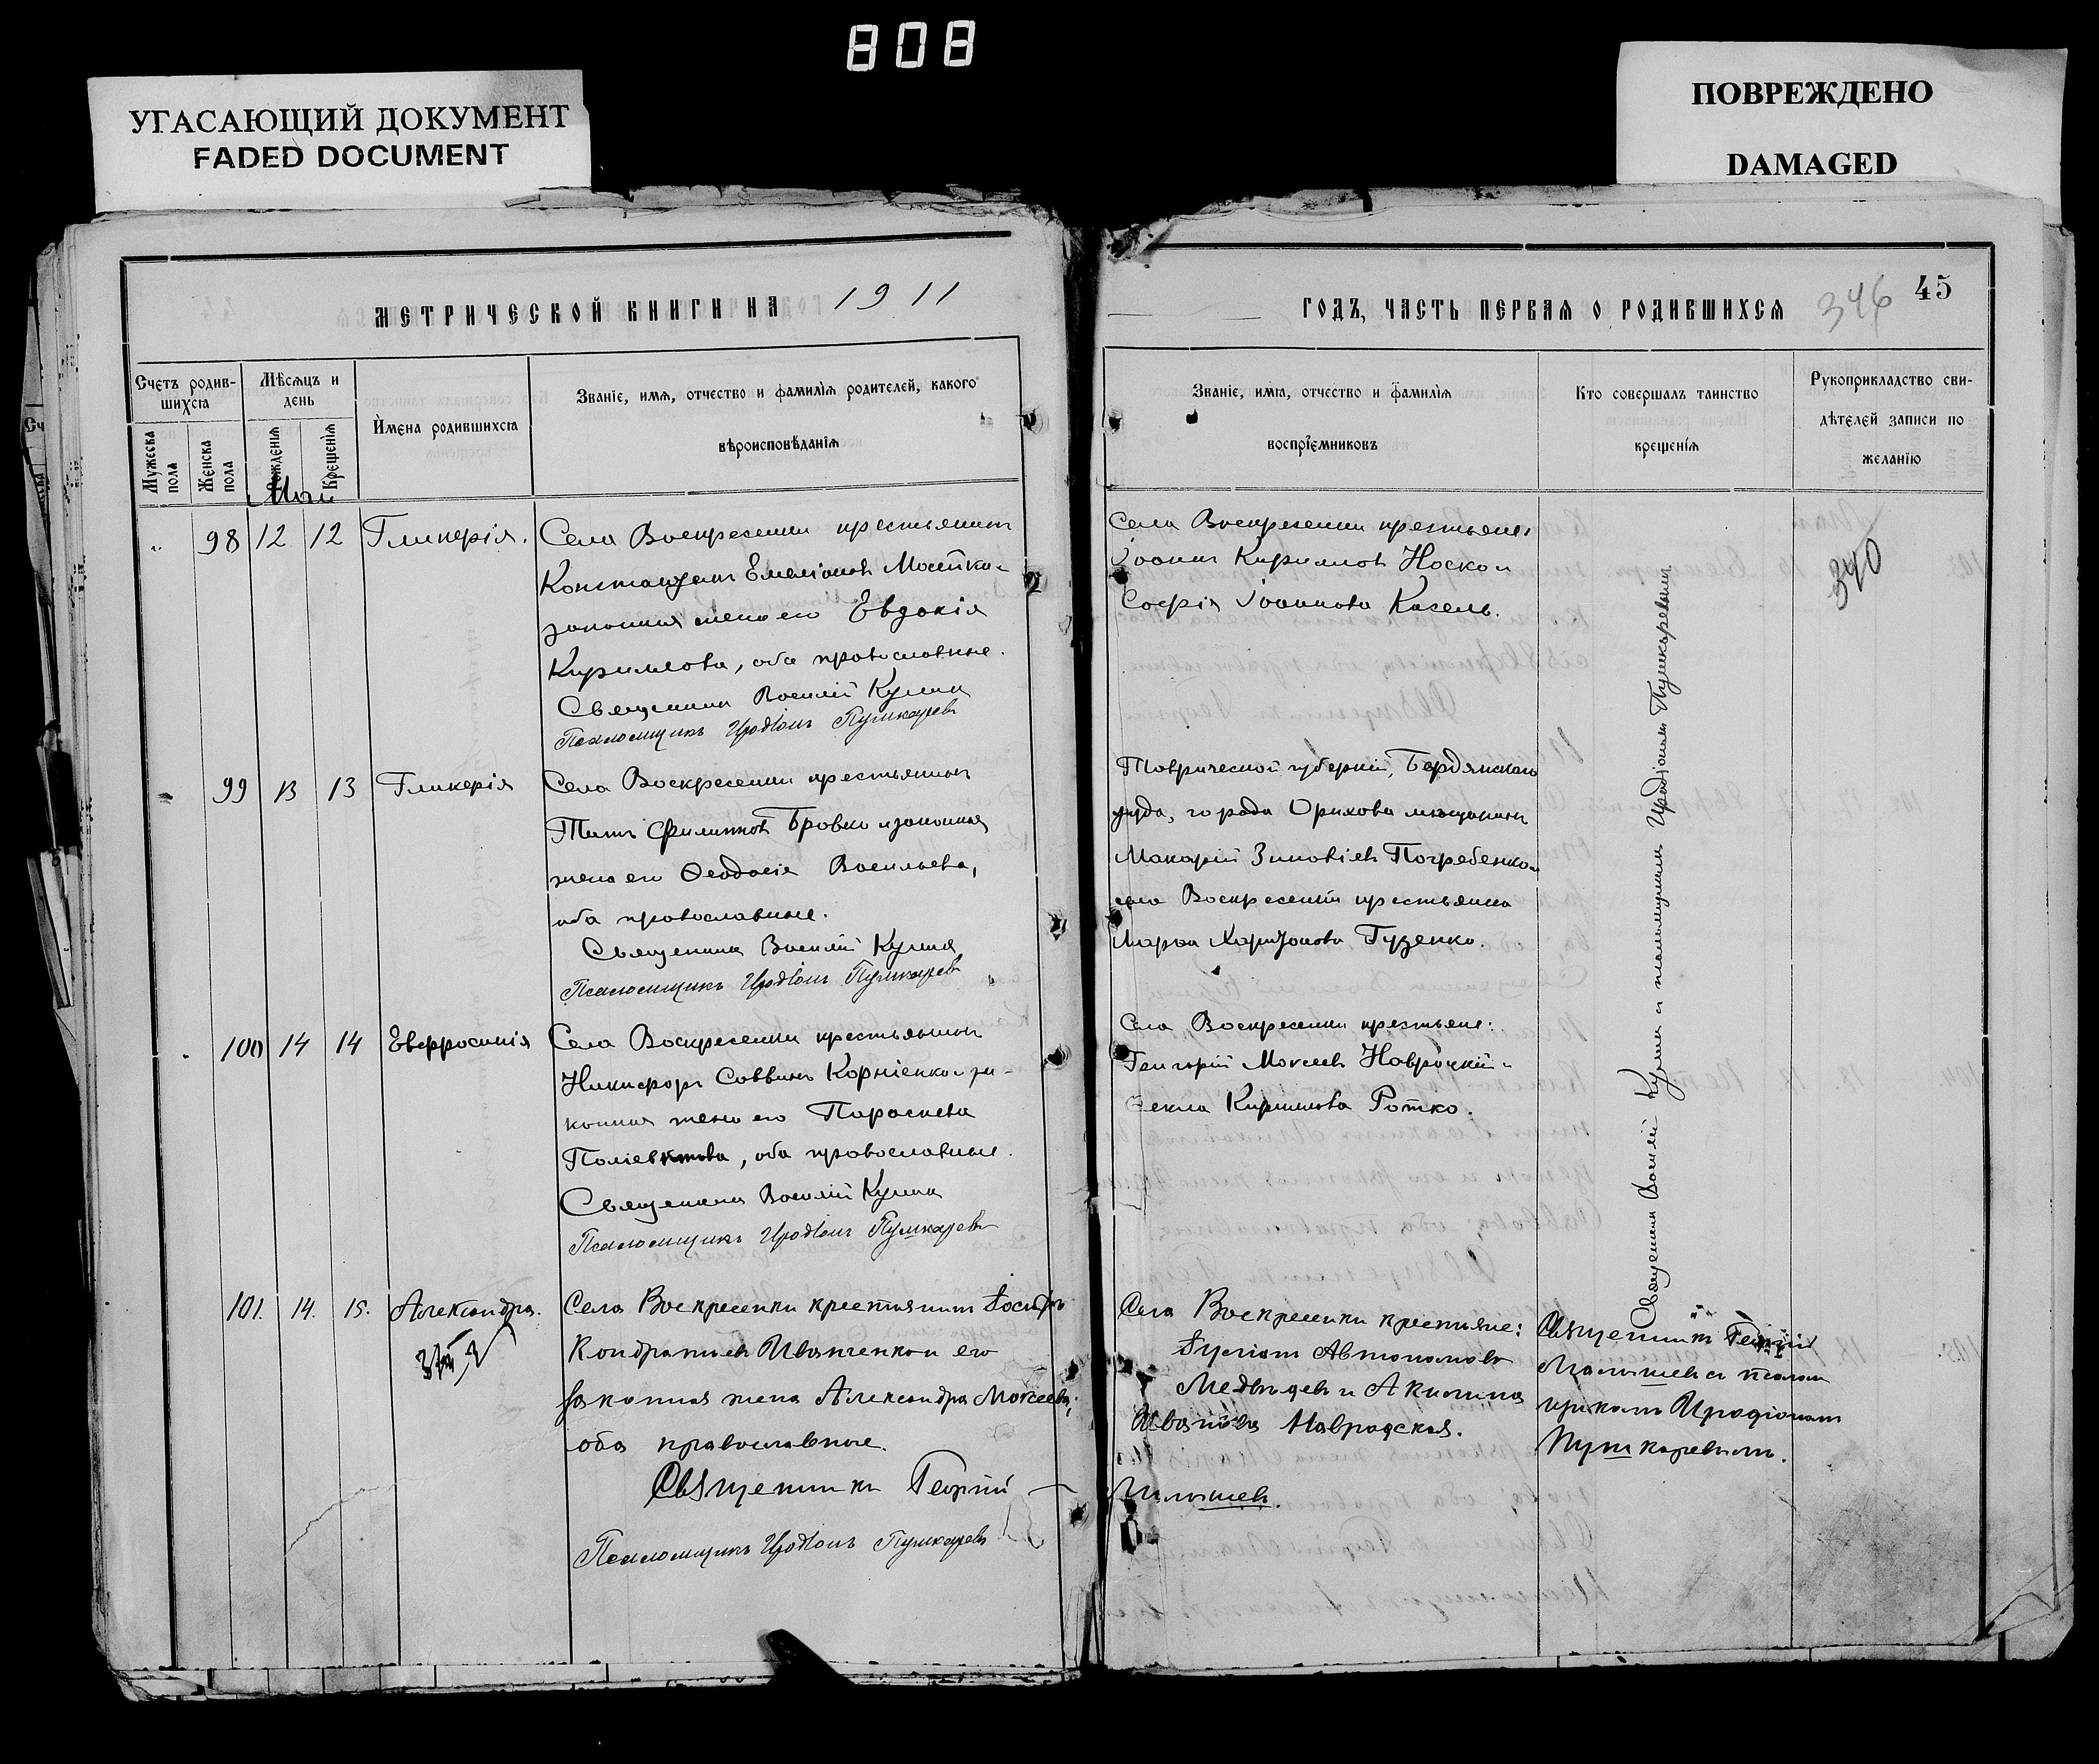 808
УГАСАЮЩИЙ ДОКУМЕНТ
FADED DOCUMENT
ПОВРЕЖДЕНО
DAMAGED
МЕТРИЧЕСКОЙ КНИГИ НА 1911
Счетъ родив-
шихся
Мѣсяцъ и
день
Мужеска
пола
Женска
пола
Рожденія
Крещенія
Имена родившихся
Званіе, имя, отчество и фамилія родителей, какого
вѣроисповѣданія
Май
98 12 12 Гликерія. Села Воскресенки крестьянинъ
Константинъ Емеліановъ
законная жена его Евдокія
Кириллова, оба православные.
Священникъ Василій
Псаломщикъ Иродіонъ Пушкаревъ
99 13 13 Гликерія Села Воскресенки крестьянинъ
Титъ Филипповъ Бровко и законная
жена его Ѳеодосія Васильева,
оба православные.
Священникъ Василій
Псаломщикъ Иродіонъ Пушкаревъ
100 14 14 Евфросинія Села Воскресенки крестьянинъ
Никифоръ Саввинъ Корніенко и за-
конная жена его Параскева
Поліевктова, оба православные.
Священникъ Василій
Псаломщикъ Иродіонъ Пушкаревъ
101. 14. 15. Александра. Села Воскресенки крестьянинъ Іосифъ
Кондратьевъ Иванченко и его
законная жена Александра Моѵсеева;
оба православные.
Священникъ Георгій
Псаломщикъ Иродіонъ Пушкаревъ
ГОДЪ, ЧАСТЬ ПЕРВАЯ О РОДИВШИХСЯ 346 45
Званіе, имя, отчество и фамилія
воспріемниковъ
Кто совершалъ таинство
крещенія
Рукоприкладство сви-
дѣтелей записи по
желанію
Села Воскресенки крестьяне:
Іоаннъ Кирилловъ Носко и
Софія Іоаннова Кисель.
340
Таврической губерніи, Бердянскаго
уѣзда, города Орѣхова мѣщанинъ
Макарій Зиновіевъ Погребенко и
села Воскресенки крестьянка
Марѳа Харитонова Гузенко.
Села Воскресенки крестьяне:
Григорій Моѵсеевъ Навроцкій и
Ѳекла Кириллова Ротко.
Священникъ Василій и псаломщикъ Иродіонъ Пушкаревъ
Села Воскресенки крестьяне:
Автономовъ
Медвѣдевъ и Акилина
Иванова Навродская.
Малышев.
Священникъ Георгій
Малышевъ съ псалом
щикомъ Иродіономъ
Пушкаревымъ.